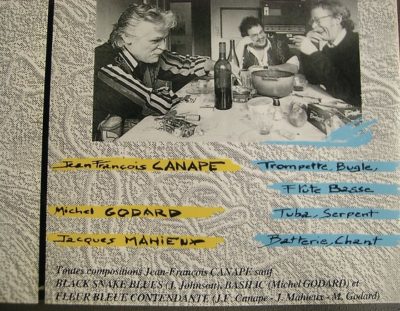 Jean François CANAPE Trompette, Bugle,
Flûte Basse
Michel GODARD Tuba, Serpent
Jacques MAHIEUX Batterie, Chant
Toutes compositions Jean-François CANAPE sauf
BLACK SNAKE BLUES (J. Johnson), BASILIC (Michel GODARD) et
FLEUR BLEUE CONTENDANTE (J.F. Canape - J. Mahieux - M. Godard)